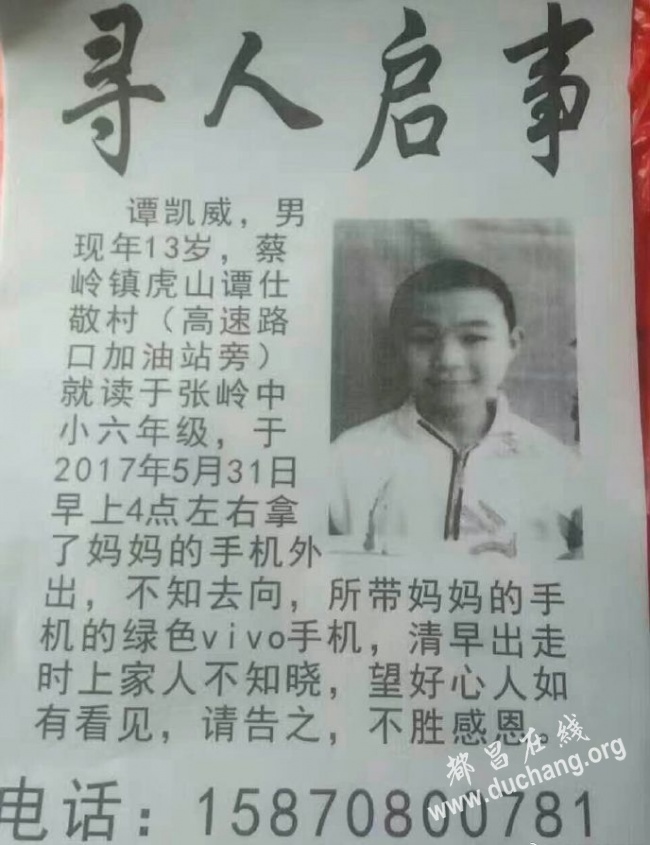 寻人启事
谭凯威，男
现年13岁，蔡
岭镇虎山谭仕
敬村（高速路
口加油站旁）
就读于张岭中
小六年级，于
2017年5月31日
早上4点左右拿
了妈妈的手机外
出，不知去向，所带妈妈的手
机的绿色vivo手机，清早出走
时上家人不知晓，望好心人如
有看见，请告之，不胜感恩。
电话：15870800781
都昌在线
www.duchang.org